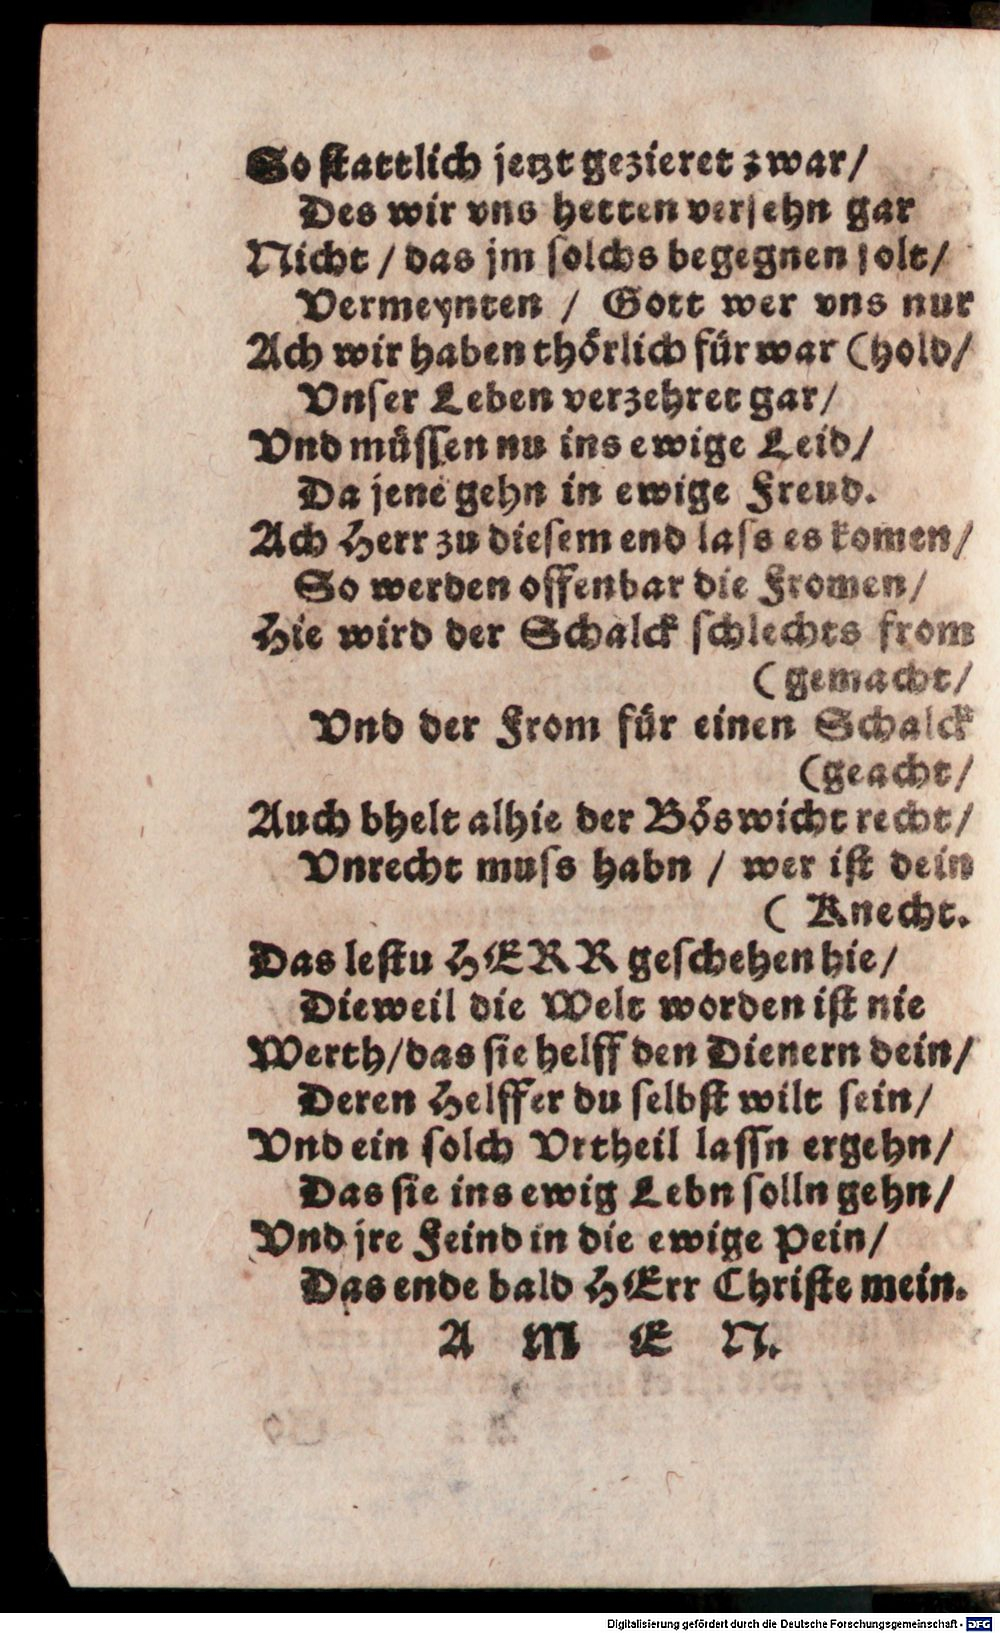 So stattlich jetzt gezieret zwar/
Des wir vns hetten versehn gar
Nicht / das jm solchs begegnen solt/
Vermeynten / Gott wer vns nur
Ach wir haben thörlich für war (hold/
Vnser Leben verzehret gar/
Vnd müssen nu ins ewige Leid/
Da jene gehn in ewige Freud.
Ach Herr zu diesem end lass es komen/
So werden offenbar die Fromen/
Hie wird der Schalck schlechts from
(gemacht/
Vnd der From für einen Schalck
(geacht/
Auch bhelt alhie der Böswicht recht/
Vnrecht muss habn / wer ist dein
( Knecht.
Das lestu HERR geschehen hie/
Dieweil die Welt worden ist nie
Werth/das sie helff den Dienern dein/
Deren Helffer du selbst wilt sein/
Vnd ein solch Vrtheil lassn ergehn/
Das sie ins ewig Lebn solln gehn/
Vnd jre Feind in die ewige Pein/
Das ende bald HErr Christe mein.
A M E N.
Digitalisierung gefördert durch die Deutsche Forschungsgemeinschaft - DFG